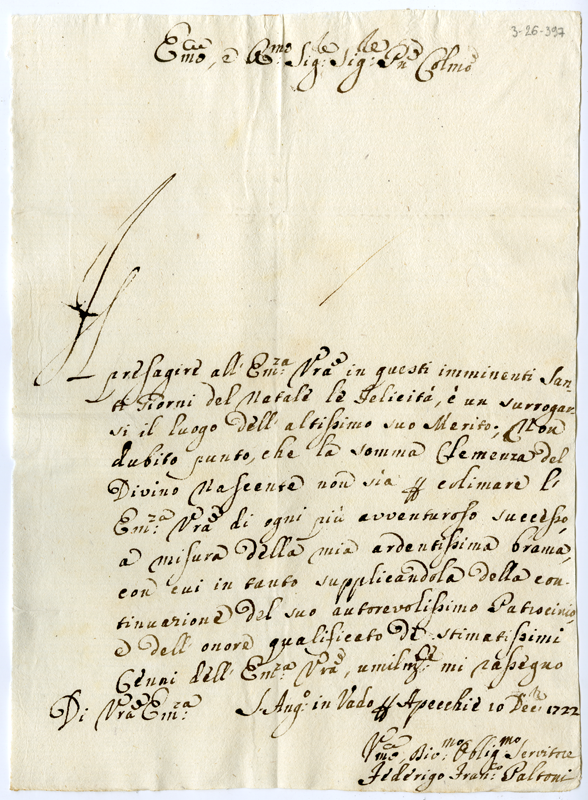 3-26-397
Emo, e Rmo Sig:le Sig:le Pne Colmo
Il
presagire all' Em:za Vra in questi imminenti San-
ti Giorni del Natale le Felicità, è un surrogar-
si il luogo dell' altissimo suo Merito; Non
dubito punto, che la somma Clemenza del
Divino Nascente non sia p
Em:za Vra di ogni più avventuroso successo,
a misura della mia ardentissima brama,
con cui in tanto supplicandola della con-
tinuazione del suo autorevolissimo Patrocinio,
e dell' onore qualificato de stimatissimi
Cenni dell' Em:za Vra, umilmte mi rassegno
Di Vra Em:za S. Ang:o in Vado p Apecchie 10 Dec:re 1722
Vmo, Divo:mo Oblig:mo Servitore
Federigo Fran:co Paltoni